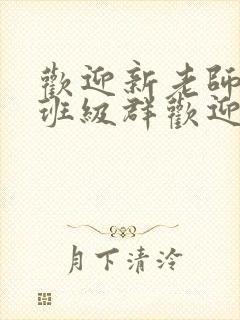 歡迎新老師
班級群歡迎
月下清泠